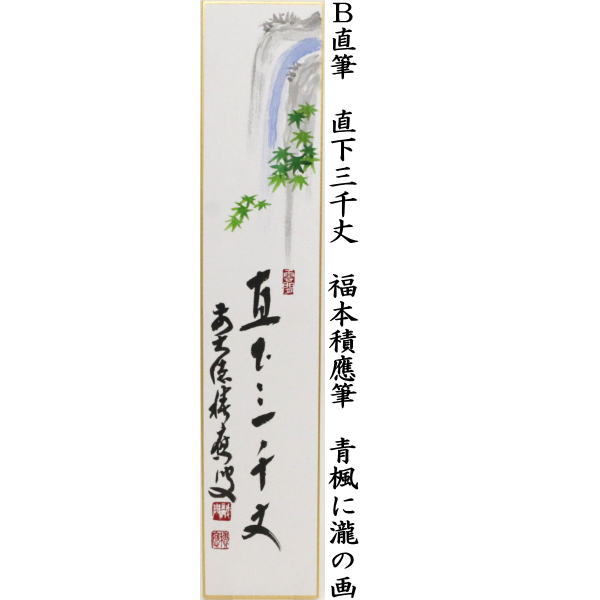 B直筆　直下三千丈　福本積應筆　青楓に瀧の画
直下三千丈
前大徳積應叟